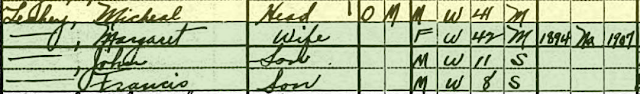 Leahey, Micheal Head O M M W 41 M
—, Margaret Wife F W 42 M 1894 Na 1907
—, John Son M W 11 S
—, Francis Son M W 8 S